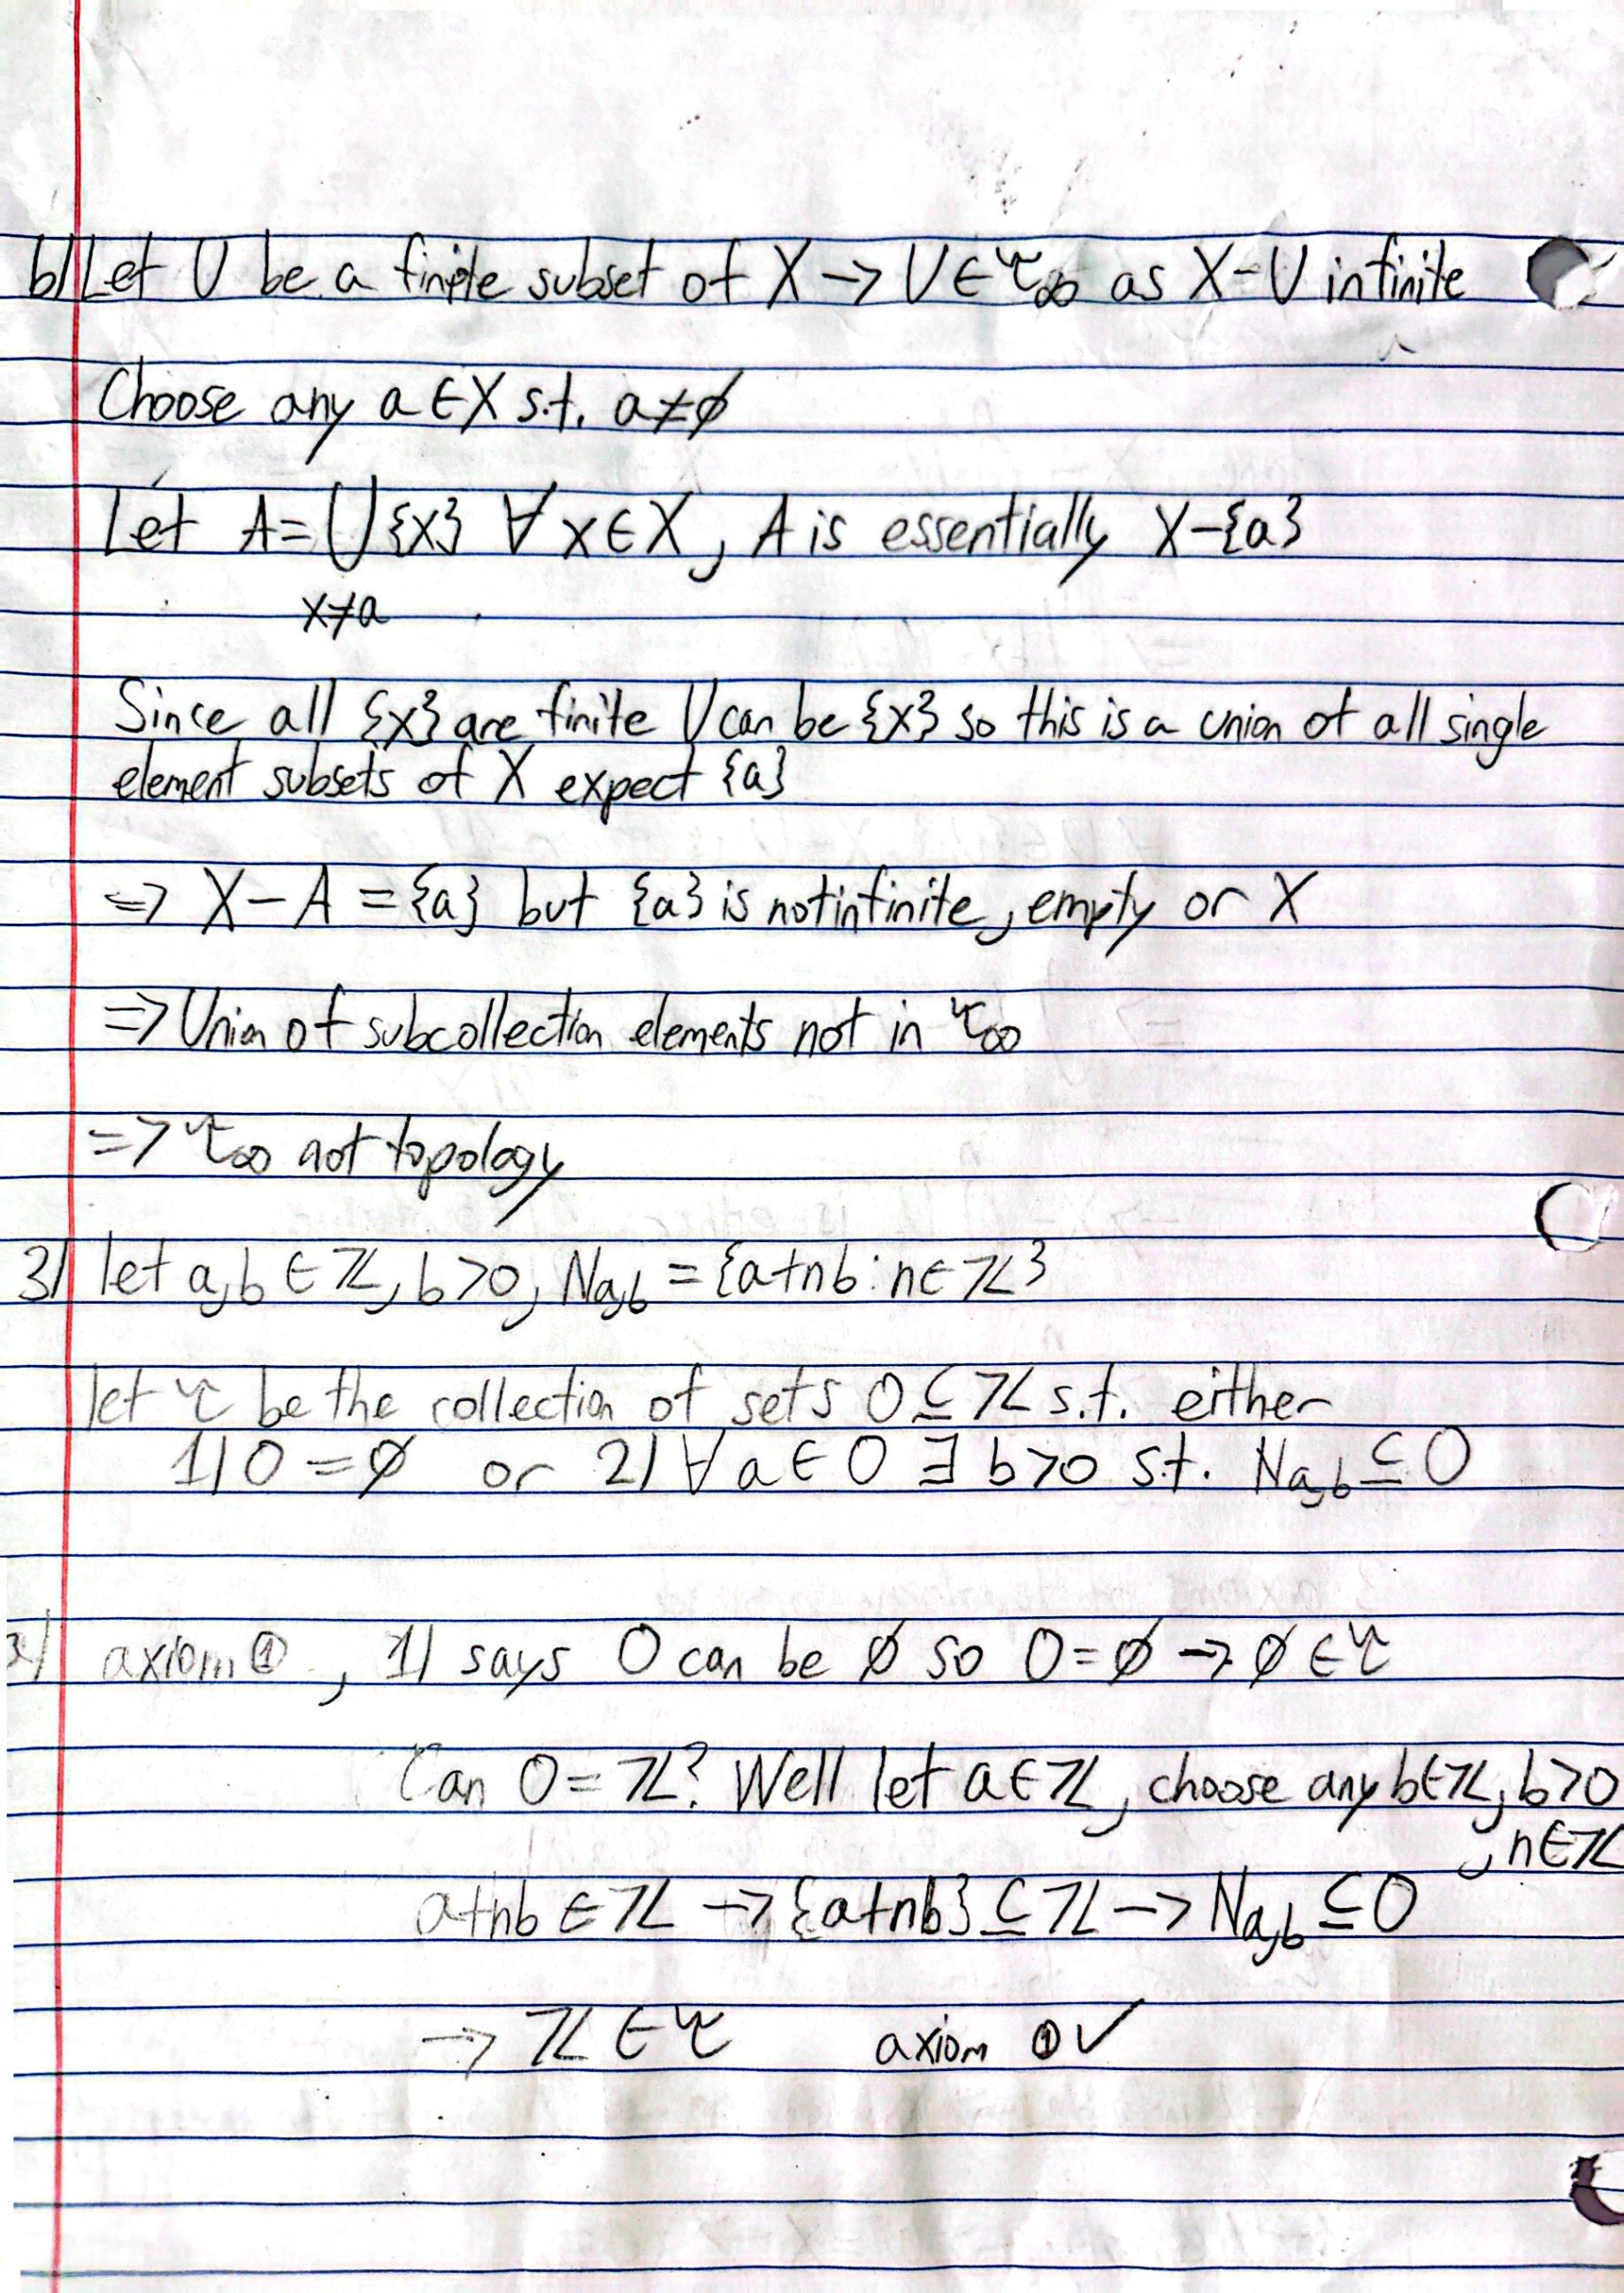 b) Let U be a finite subset of X → U ∈ τ∞ as X-U infinite
Choose any a ∈ X s.t. a ≠ ∅
Let A = ⋃ {x} ∀ x ∈ X, A is essentially X-{a}
x≠a
Since all {x} are finite U can be {x} so this is a union of all single
element subsets of X expect {a}
⇒ X-A = {a} but {a} is not infinite, empty or X
⇒ Union of subcollection elements not in τ∞
⇒ τ∞ not topology
3) let a,b ∈ ℤ, b>0, Na,b = {a+nb : n ∈ ℤ}
let τ be the collection of sets O ⊆ ℤ s.t. either
1) O = ∅ or 2) ∀ a ∈ O ∃ b>0 s.t. Na,b ⊆ O
a) axiom ①, 1) says O can be ∅ so O = ∅ → ∅ ∈ τ
Can O = ℤ? Well let a ∈ ℤ, choose any b ∈ ℤ, b>0
, n ∈ ℤ
a+nb ∈ ℤ → {a+nb} ⊆ ℤ → Na,b ⊆ O
→ ℤ ∈ τ axiom ① ✓